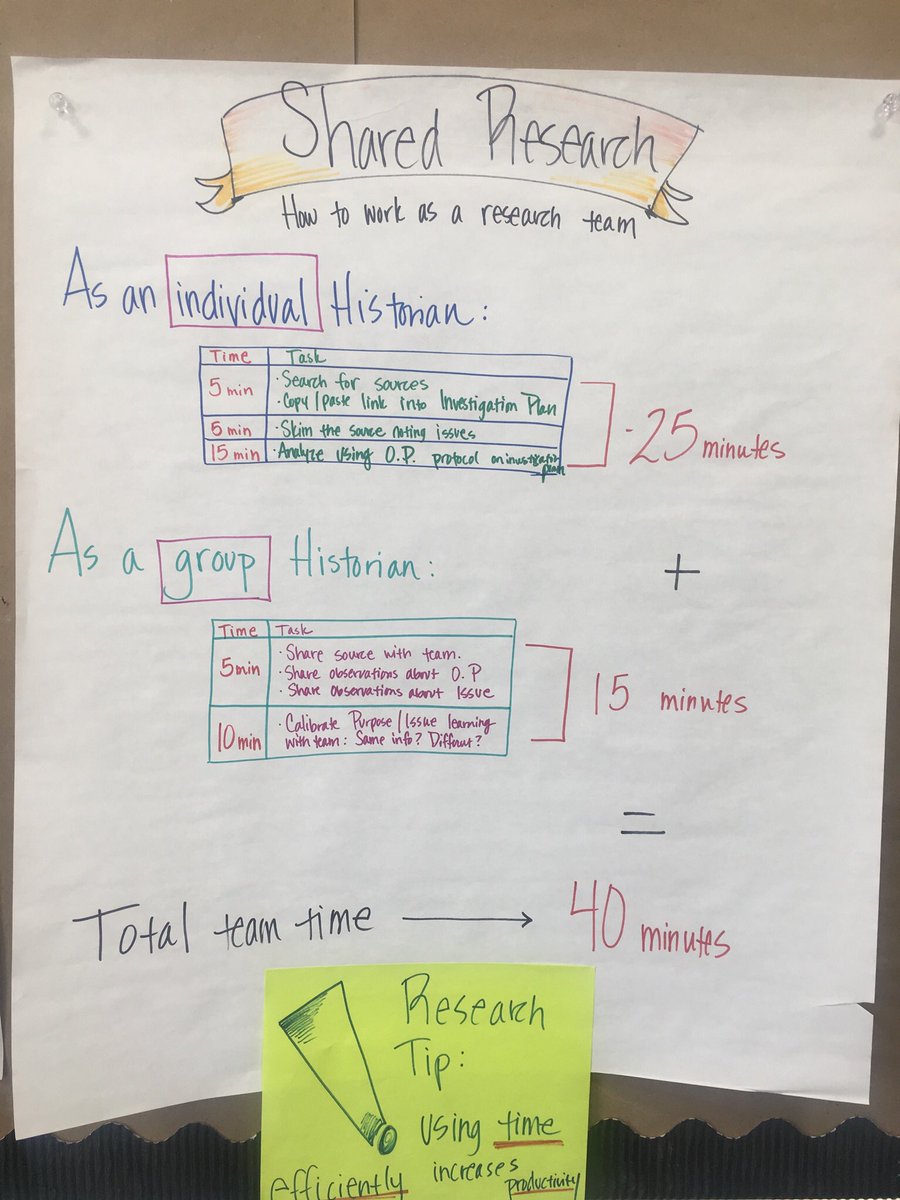 Shared Research
How to work as a research team
As an individual Historian:
Time Task
5 min · Search for sources
· Copy/paste link into Investigation Plan
5 min · Skim the source noting issues
15 min · Analyze using O.P. protocol on investigation
plan
- 25 minutes
+
As a group Historian:
Time Task
5 min · Share source with team.
· Share observations about O.P
· Share observations about Issue
10 min · Calibrate Purpose/Issue learning
with team: Same info? Different?
15 minutes
=
Total team time → 40 minutes
Research
Tip:
using time
efficiently increases productivity